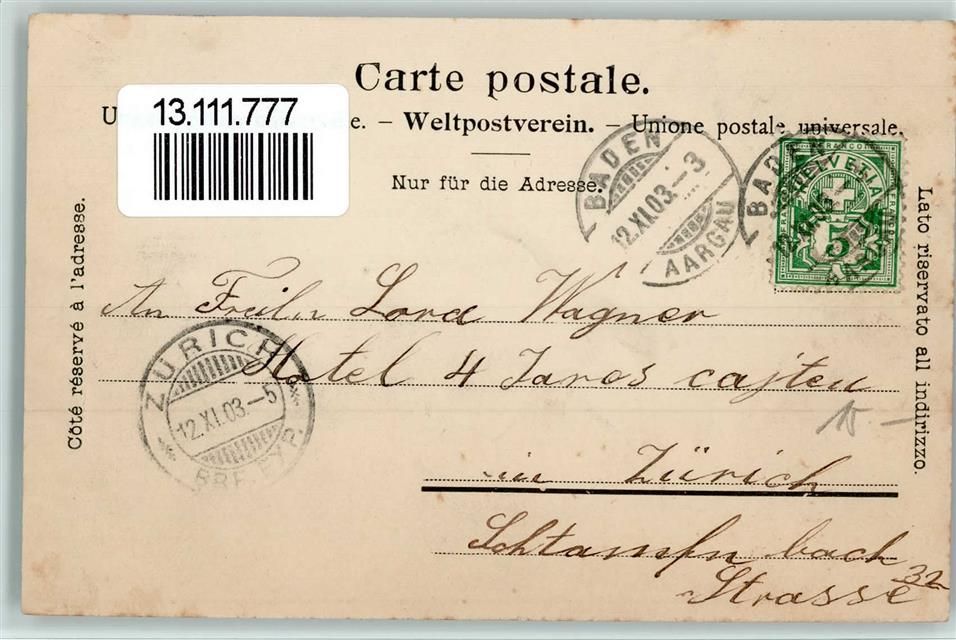 13.111.777
Carte postale.
U e. – Weltpostverein. – Unione postale universale.
Nur für die Adresse.
Côté réservé à l'adresse.
Lato riservato all indirizzo.
BADEN
12.XI.03.–3
AARGAU
BADEN
FRANCO
HELVETIA
5
An Freiln Lora Wagner
Hotel 4 Jares cajten
in Zürich
Schtampfn bach
Strasse 32
ZÜRICH
12.XI.03.–5
BRF. EXP.